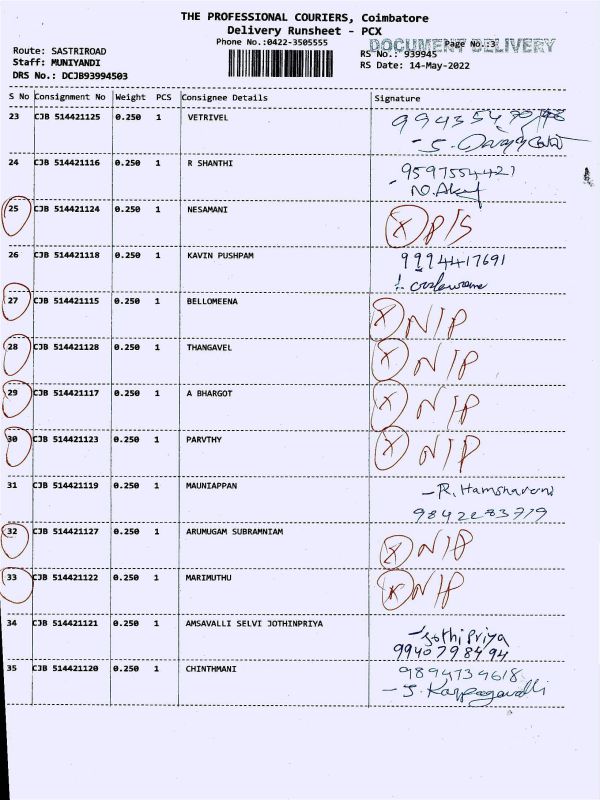 THE PROFESSIONAL COURIERS, Coimbatore
Delivery Runsheet - PCX
Phone No.:0422-3505555
DOCUMENT DELIVERY
Page No.:3
Route: SASTRIROAD
RS No.: 939945
Staff: MUNIYANDI
RS Date: 14-May-2022
DRS No.: DCJB93994503
S No Consignment No Weight PCS Consignee Details Signature
23 CJB 514421125 0.250 1 VETRIVEL
24 CJB 514421116 0.250 1 R SHANTHI 9597554421
25 CJB 514421124 0.250 1 NESAMANI X P/S
26 CJB 514421118 0.250 1 KAVIN PUSHPAM 9994417691
27 CJB 514421115 0.250 1 BELLOMEENA X N/P
28 CJB 514421128 0.250 1 THANGAVEL X N/P
29 CJB 514421117 0.250 1 A BHARGOT X N/P
30 CJB 514421123 0.250 1 PARVTHY X N/P
31 CJB 514421119 0.250 1 MAUNIAPPAN - R. Hamsharani
32 CJB 514421127 0.250 1 ARUMUGAM SUBRAMNIAM X N/P
33 CJB 514421122 0.250 1 MARIMUTHU X N/P
34 CJB 514421121 0.250 1 AMSAVALLI SELVI JOTHINPRIYA - Jothi Priya
9940798494
35 CJB 514421120 0.250 1 CHINTHMANI 9894734618
- J. Karpagavalli